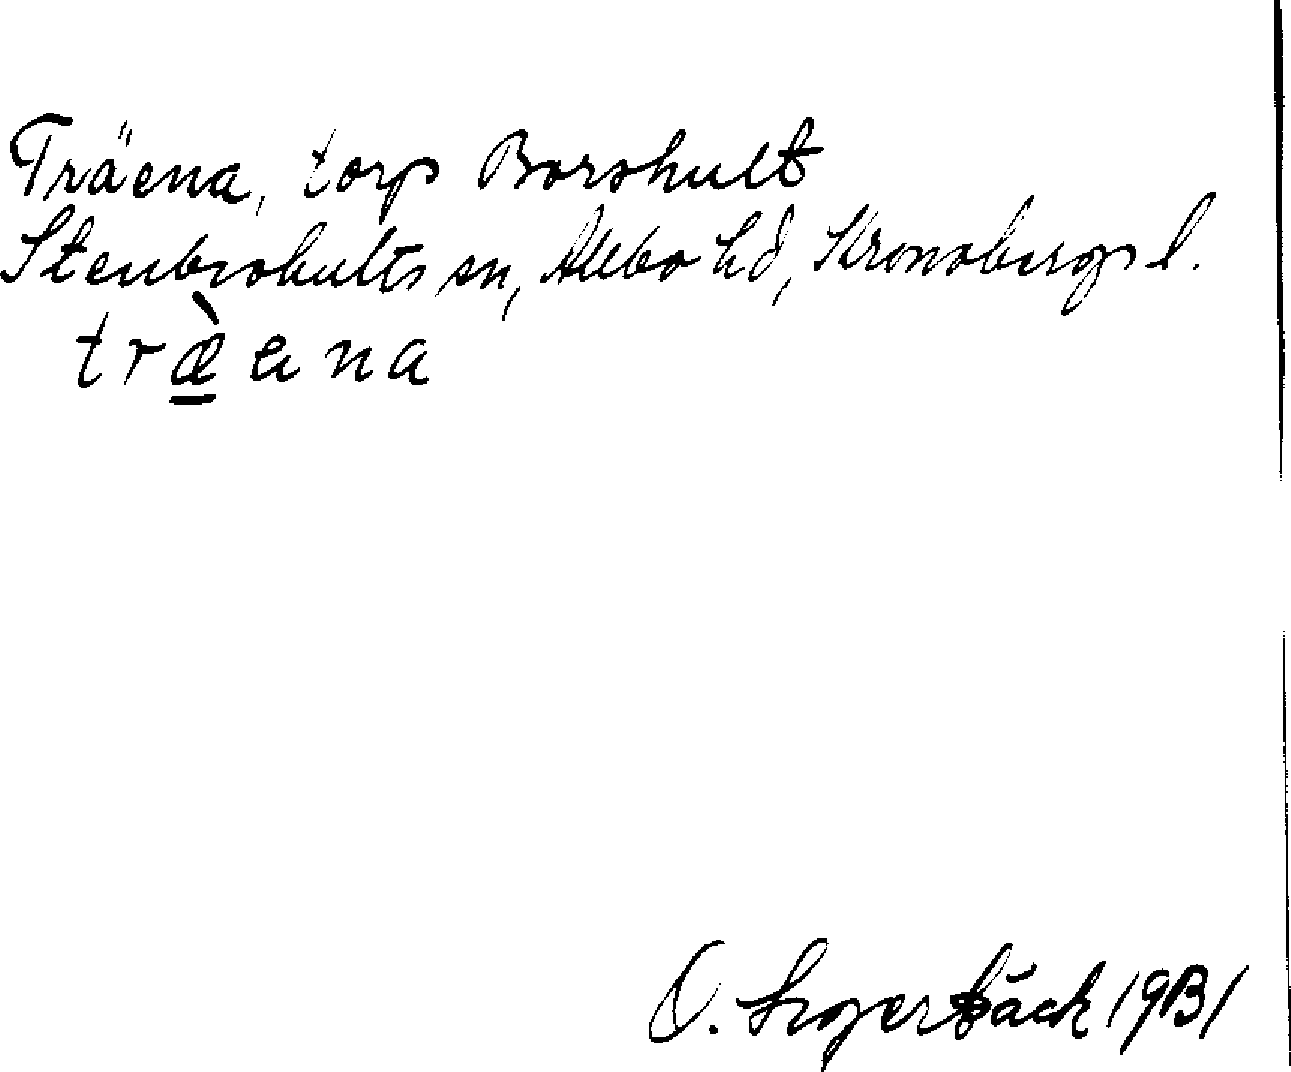 Träena, torp Borshult
Stenbrohults sn, Allbo hd, Kronobergs l.
træ̀ena
O. Segerbäck 1931